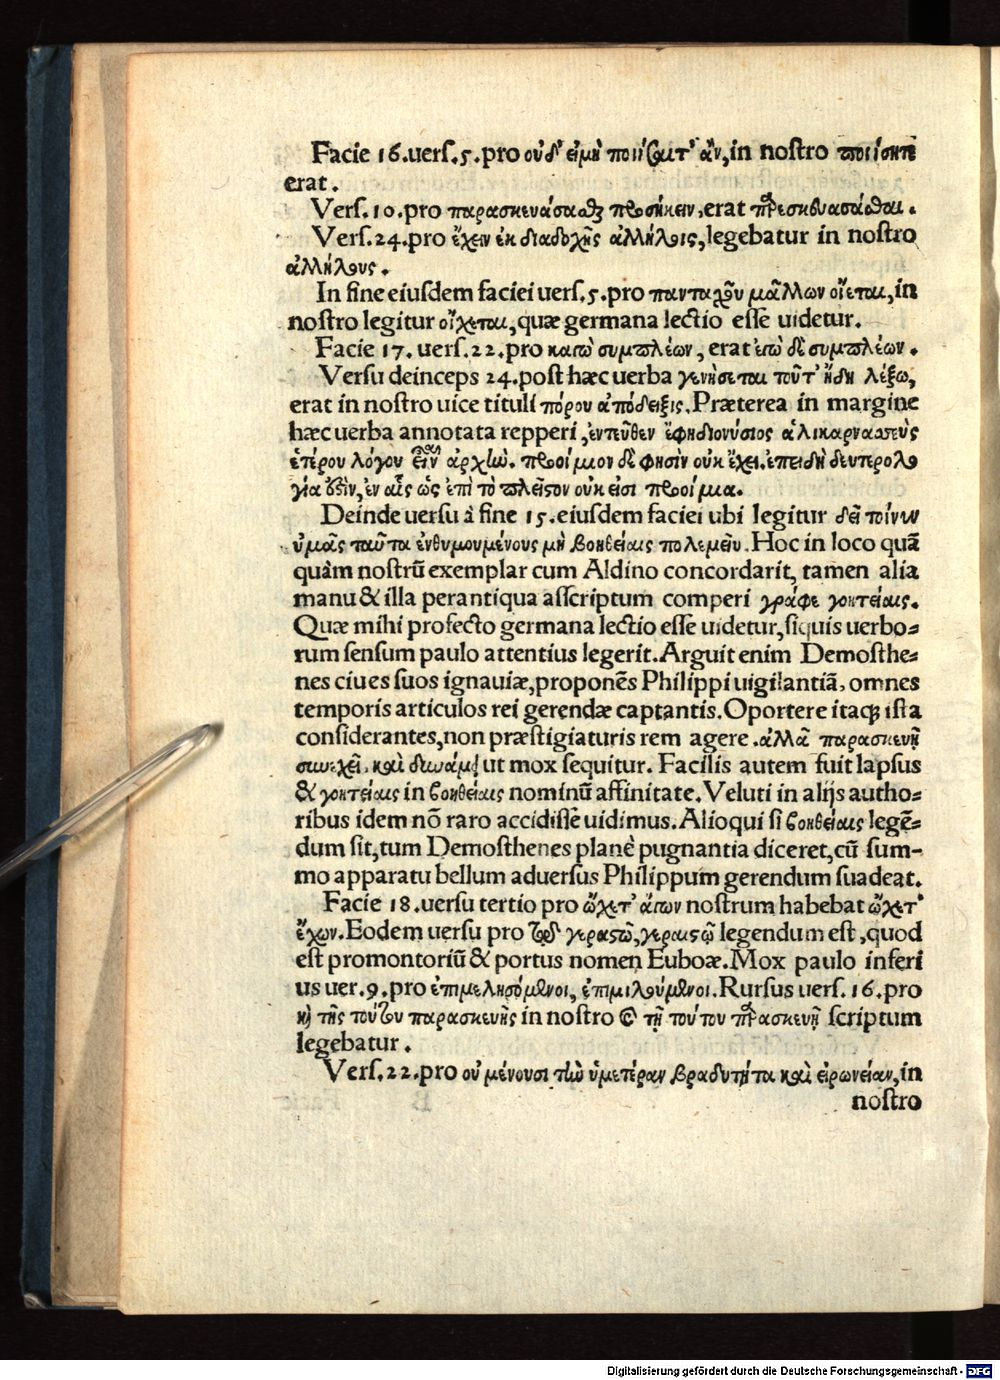 Facie 16. uerſ. 5. pro οὐδ' εἰ μὴ ποιήσαιτ' ἂν, in noſtro ποιήσητε
erat.
Verſ. 10. pro παρασκευάσασθαι προσήκειν, erat παρεσκευασάσθαι.
Verſ. 24. pro ἔχειν ἐκ διαδοχῆς ἀλλήλοις, legebatur in noſtro
ἀλλήλους.
In fine eiuſdem faciei uerſ. 5. pro πανταχοῦ μᾶλλον οἴεται, in
noſtro legitur οἴχεται, quæ germana lectio eſſe uidetur.
Facie 17. uerſ. 22. pro κἀγὼ συμπλέων, erat ἐγὼ δὲ συμπλέων.
Verſu deinceps 24. poſt hæc uerba γενήσεται τοῦτ' ἤδη λέξω,
erat in noſtro uice tituli πόρου ἀπόδειξις. Præterea in margine
hæc uerba annotata repperi, ἐντεῦθεν ἔφη διονύσιος ἁλικαρνασεὺς
ἑτέρου λόγου εἶναι ἀρχὴν. προοίμιον δὲ φησὶν οὐκ ἔχει. ἐπειδὴ δευτερολο
γία ἐστὶν, ἐν αἷς ὡς ἐπὶ τὸ πλεῖστον οὐκ εἰσι προοίμια.
Deinde uerſu à fine 15. eiuſdem faciei ubi legitur δεῖ τοίνυν
ὑμᾶς ταῦτα ἐνθυμουμένους μὴ βοηθείαις πολεμεῖν. Hoc in loco quā
quàm noſtrū exemplar cum Aldino concordarit, tamen alia
manu & illa perantiqua aſſcriptum comperi γράφε γοητείαις.
Quæ mihi profecto germana lectio eſſe uidetur, ſiquis uerbo⸗
rum ſenſum paulo attentius legerit. Arguit enim Demoſthe⸗
nes ciues ſuos ignauiæ, proponēs Philippi uigilantiā, omnes
temporis articulos rei gerendæ captantis. Oportere itaq; iſta
conſiderantes, non præſtigiaturis rem agere. ἀλλὰ παρασκευῇ
συνεχεῖ, καὶ δυνάμει ut mox ſequitur. Facilis autem fuit lapſus
& γοητείαις in βοηθείαις nominū affinitate. Veluti in alijs autho⸗
ribus idem nō raro accidiſſe uidimus. Alioqui ſi βοηθείαις legē⸗
dum ſit, tum Demoſthenes planè pugnantia diceret, cū ſum-
mo apparatu bellum aduerſus Philippum gerendum ſuadeat.
Facie 18. uerſu tertio pro ᾤχετ' ἄγων noſtrum habebat ᾤχετ'
ἔχων. Eodem uerſu pro τῷ γεραστῷ, γεραιστῷ legendum eſt, quod
eſt promontoriū & portus nomen Eubœæ. Mox paulo inferi
us uer. 9. pro ἐπιμελησόμενοι, ἐπιμελούμενοι. Rurſus uerſ. 16. pro
καὶ τῆς τούτου παρασκευῆς in noſtro ἐν τῇ τούτου παρασκευῇ ſcriptum
legebatur.
Verſ. 22. pro οὐ μένουσι τὴν ὑμετέραν βραδυτῆτα καὶ εἰρωνείαν, in
noſtro
Digitalisierung gefördert durch die Deutsche Forschungsgemeinschaft - DFG